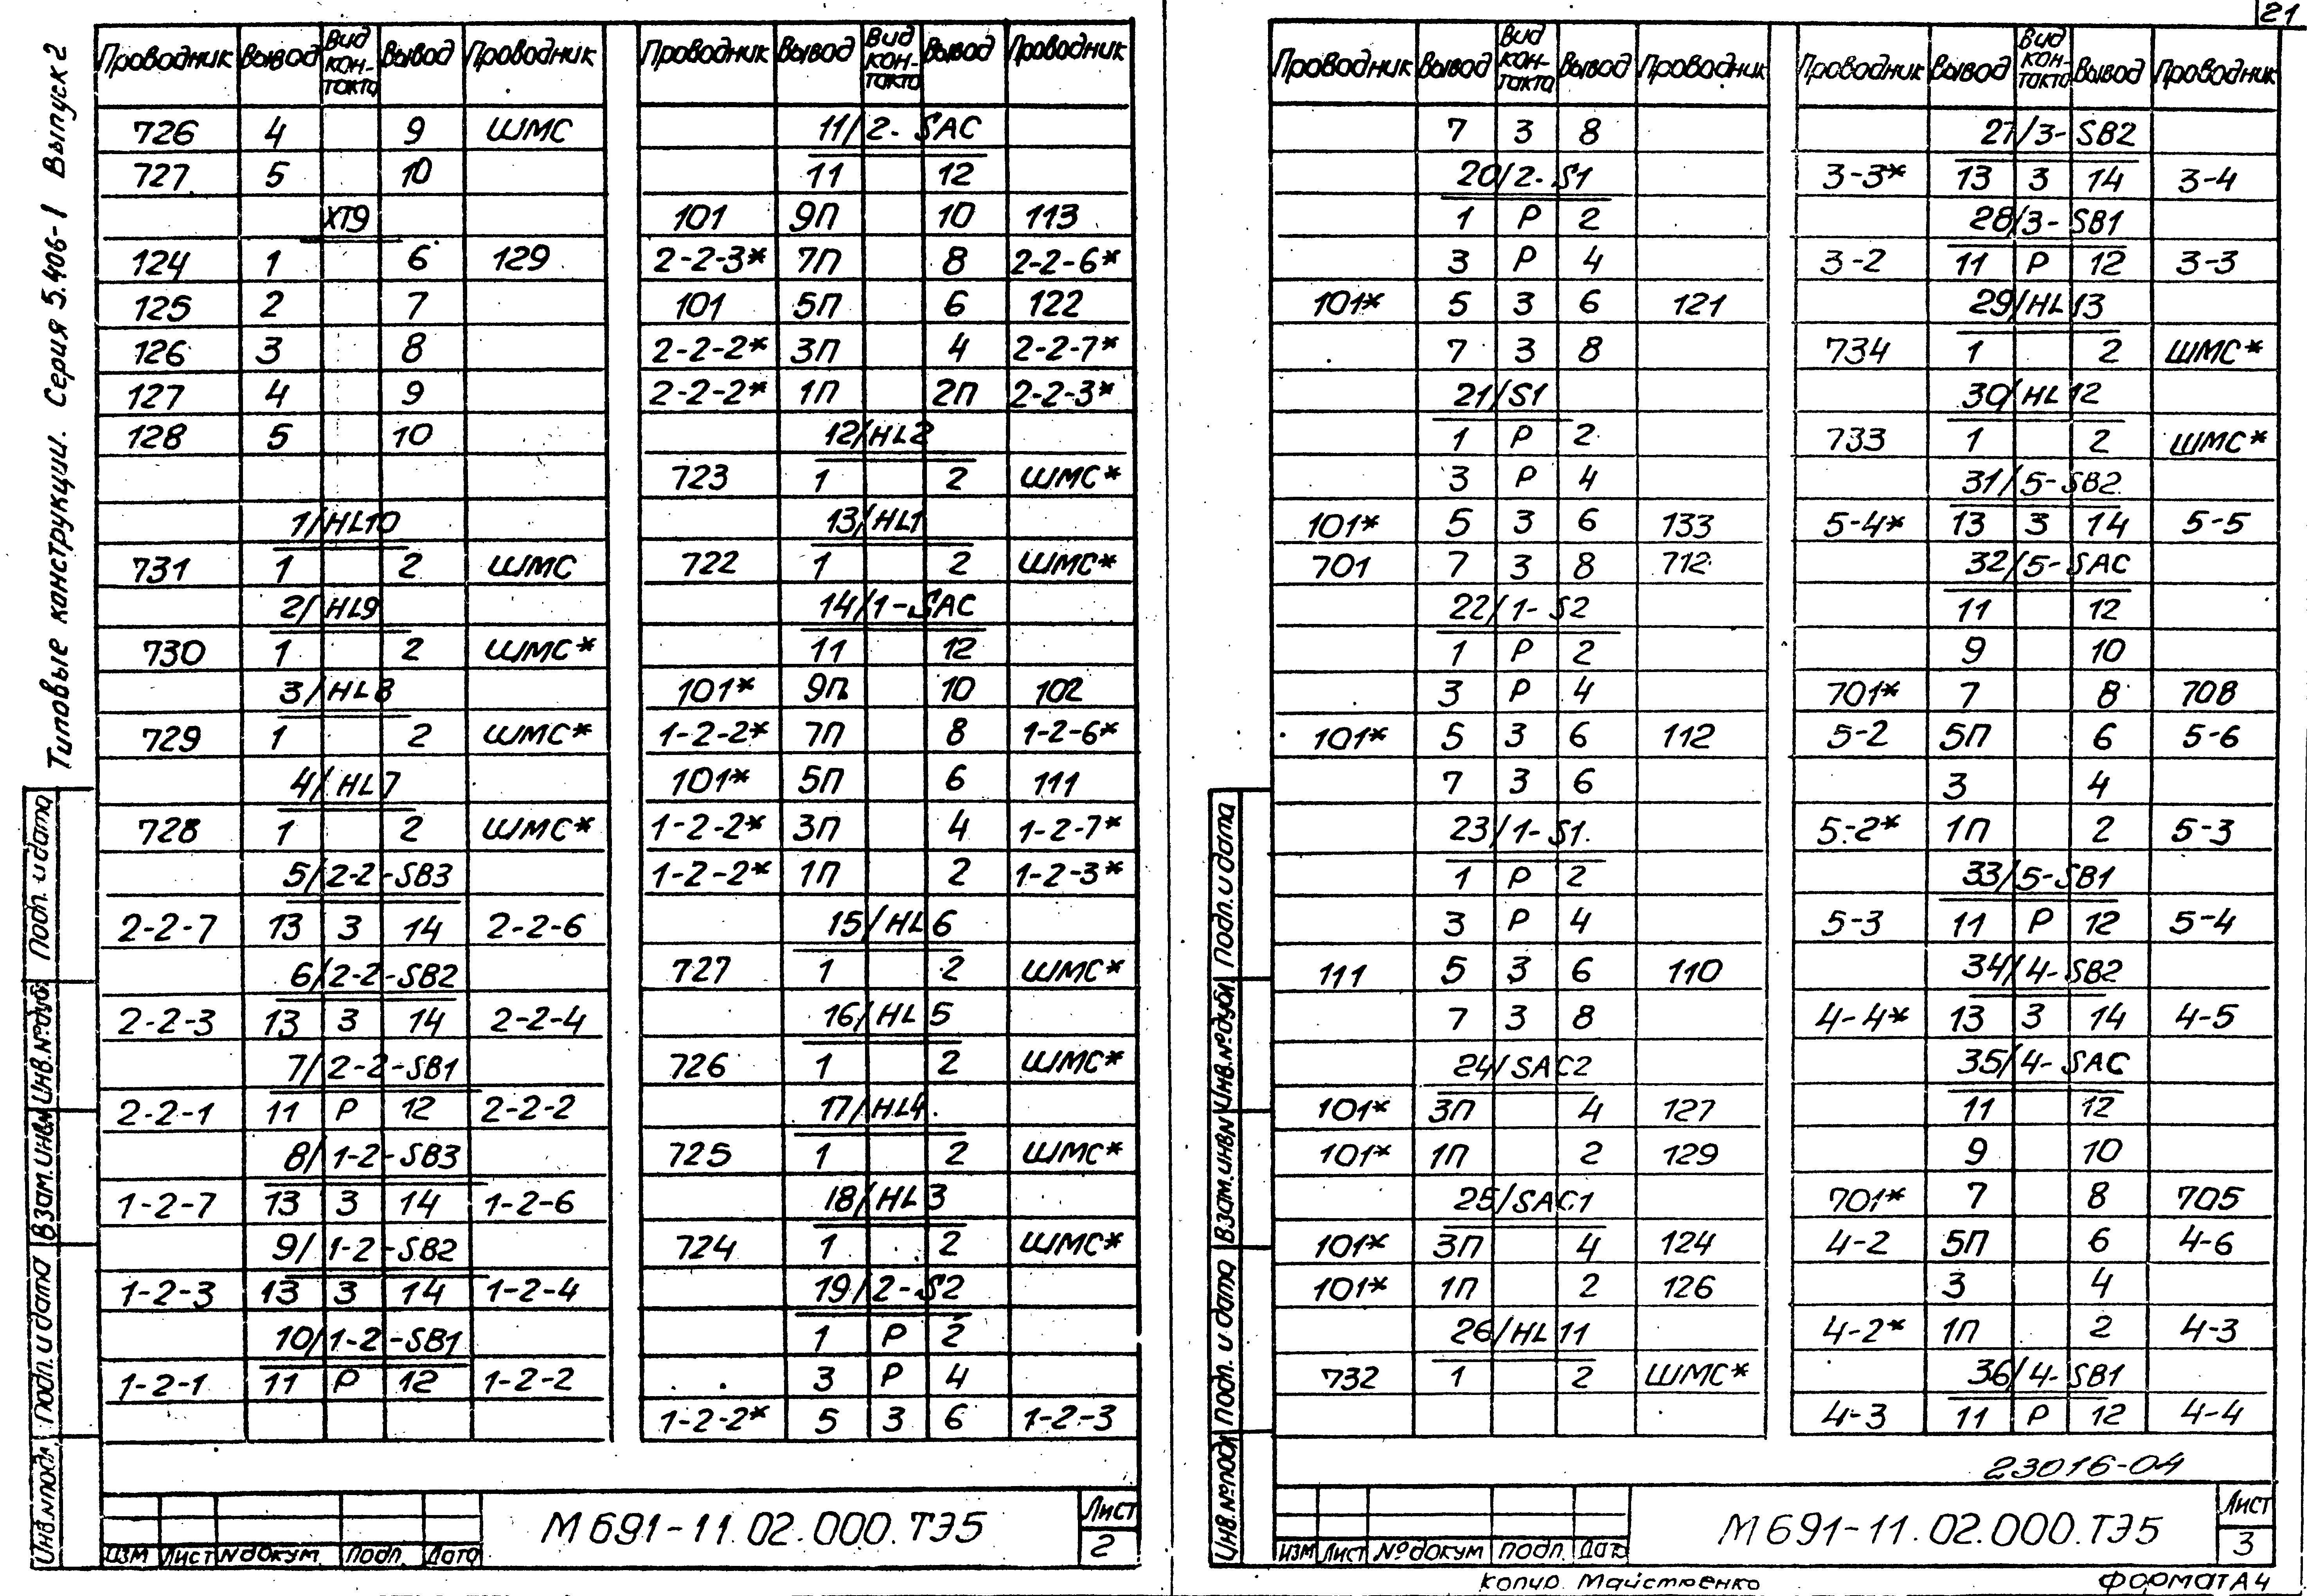 Типовые конструкции. Серия 5.406-1 Выпуск 2
Проводник Вывод Вид кон-такта Вывод Проводник
726 4 9 ШМС
727 5 10
ХТ9
124 1 6 129
125 2 7
126 3 8
127 4 9
128 5 10
1/HL10
731 1 2 ШМС
2/HL9
730 1 2 ШМС*
3/HL8
729 1 2 ШМС*
4/HL7
728 1 2 ШМС*
5/2-2-SB3
2-2-7 13 З 14 2-2-6
6/2-2-SB2
2-2-3 13 З 14 2-2-4
7/2-2-SB1
2-2-1 11 Р 12 2-2-2
8/1-2-SB3
1-2-7 13 З 14 1-2-6
9/1-2-SB2
1-2-3 13 З 14 1-2-4
10/1-2-SB1
1-2-1 11 Р 12 1-2-2
Проводник Вывод Вид кон-такта Вывод Проводник
11/2-SAC
11 12
101 9П 10 113
2-2-3* 7П 8 2-2-6*
101 5П 6 122
2-2-2* 3П 4 2-2-7*
2-2-2* 1П 2П 2-2-3*
12/HL2
723 1 2 ШМС*
13/HL1
722 1 2 ШМС*
14/1-SAC
11 12
101* 9П 10 102
1-2-2* 7П 8 1-2-6*
101* 5П 6 111
1-2-2* 3П 4 1-2-7*
1-2-2* 1П 2 1-2-3*
15/HL6
727 1 2 ШМС*
16/HL5
726 1 2 ШМС*
17/HL4
725 1 2 ШМС*
18/HL3
724 1 2 ШМС*
19/2-S2
1 Р 2
3 Р 4
1-2-2* 5 З 6 1-2-3
Инв.№подл Подп. и дата Взам.инв.№ Инв.№дубл Подп. и дата
Изм Лист № докум Подп. Дата
М691-11.02.000.ТЭ5
Лист
2
21
Проводник Вывод Вид кон-такта Вывод Проводник
7 З 8
20/2-S1
1 Р 2
3 Р 4
101* 5 З 6 121
7 З 8
21/S1
1 Р 2
3 Р 4
101* 5 З 6 133
701 7 З 8 712
22/1-S2
1 Р 2
3 Р 4
101* 5 З 6 112
7 З 6
23/1-S1
1 Р 2
3 Р 4
111 5 З 6 110
7 З 8
24/SAC2
101* 3П 4 127
101* 1П 2 129
25/SAC1
101* 3П 4 124
101* 1П 2 126
26/HL11
732 1 2 ШМС*
Проводник Вывод Вид кон-такта Вывод Проводник
27/3-SB2
3-3* 13 З 14 3-4
28/3-SB1
3-2 11 Р 12 3-3
29/HL13
734 1 2 ШМС*
30/HL12
733 1 2 ШМС*
31/5-SB2
5-4* 13 З 14 5-5
32/5-SAC
11 12
9 10
701* 7 8 708
5-2 5П 6 5-6
3 4
5-2* 1П 2 5-3
33/5-SB1
5-3 11 Р 12 5-4
34/4-SB2
4-4* 13 З 14 4-5
35/4-SAC
11 12
9 10
701* 7 8 705
4-2 5П 6 4-6
3 4
4-2* 1П 2 4-3
36/4-SB1
4-3 11 Р 12 4-4
23016-04
Инв.№подл Подп. и дата Взам.инв.№ Инв.№дубл Подп. и дата
Изм Лист № докум Подп. Дата
М691-11.02.000.ТЭ5
Лист
3
Копир. Майстренко
Формат А4